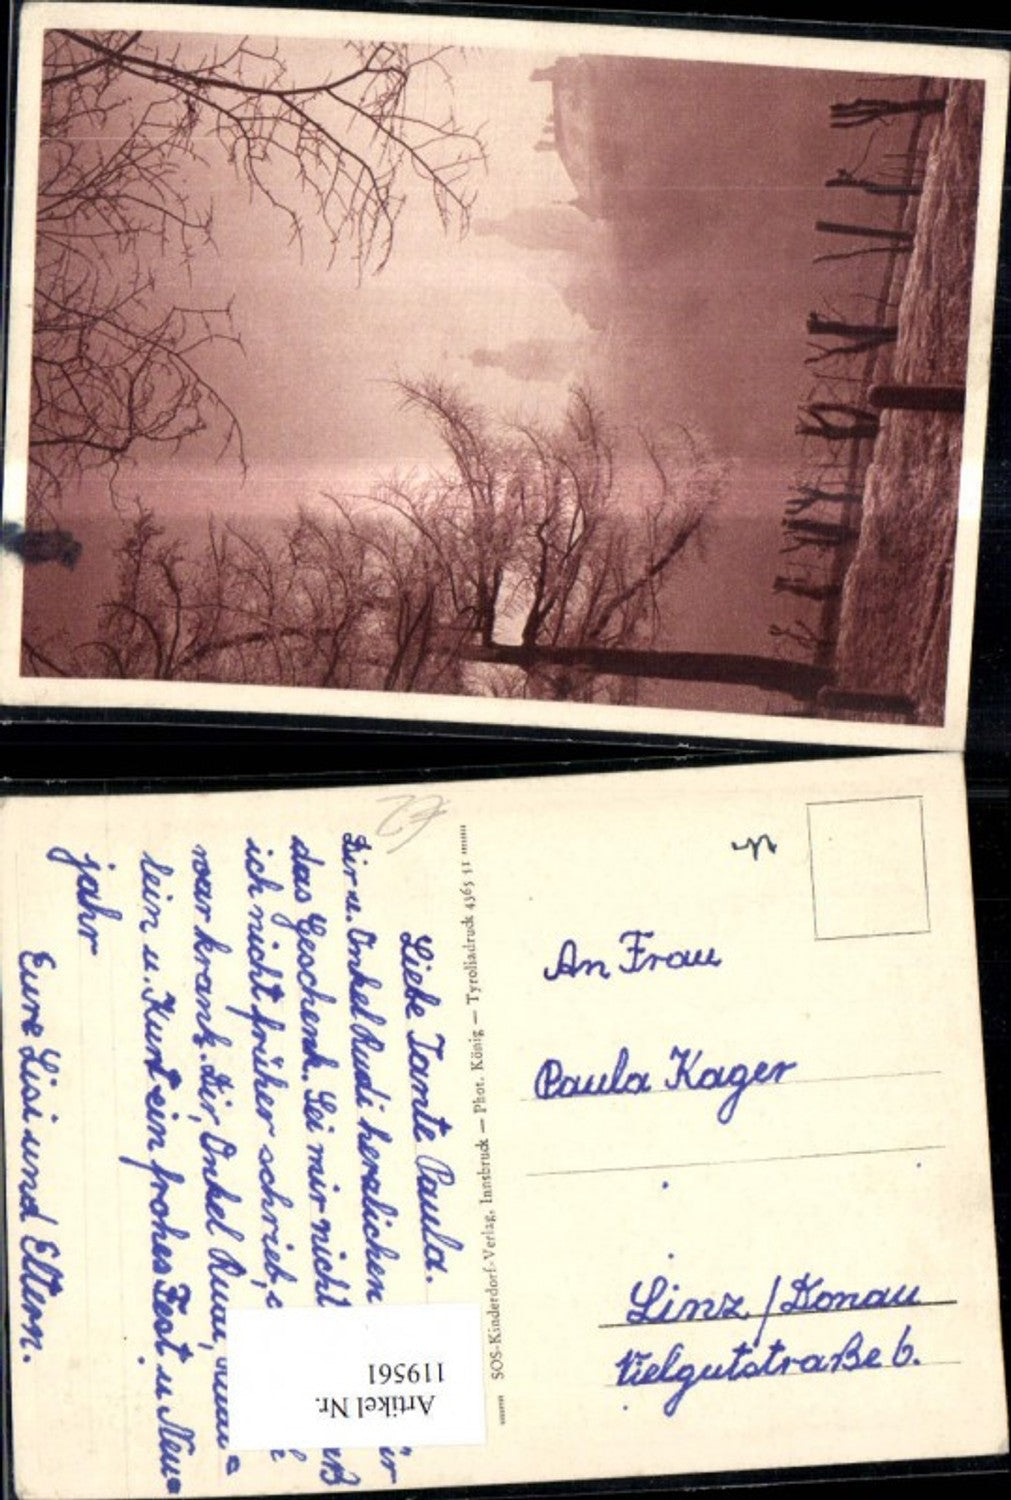 Liebe Tante Paula.
Dir u. Onkel Rudi herzlichen
das Geschenk. Sei mir nicht
ich nicht früher schrieb,
war krank. Dir, Onkel
lein u. Kurt ein frohes Fest u. Neu=
jahr
Eure Lisi und Eltern.
Artikel Nr.
119561
SOS-Kinderdorf-Verlag, Innsbruck — Phot. König — Tyroliadruck 4365 51
An Frau
Paula Kager
Linz / Donau
Vielgutstraße 6.